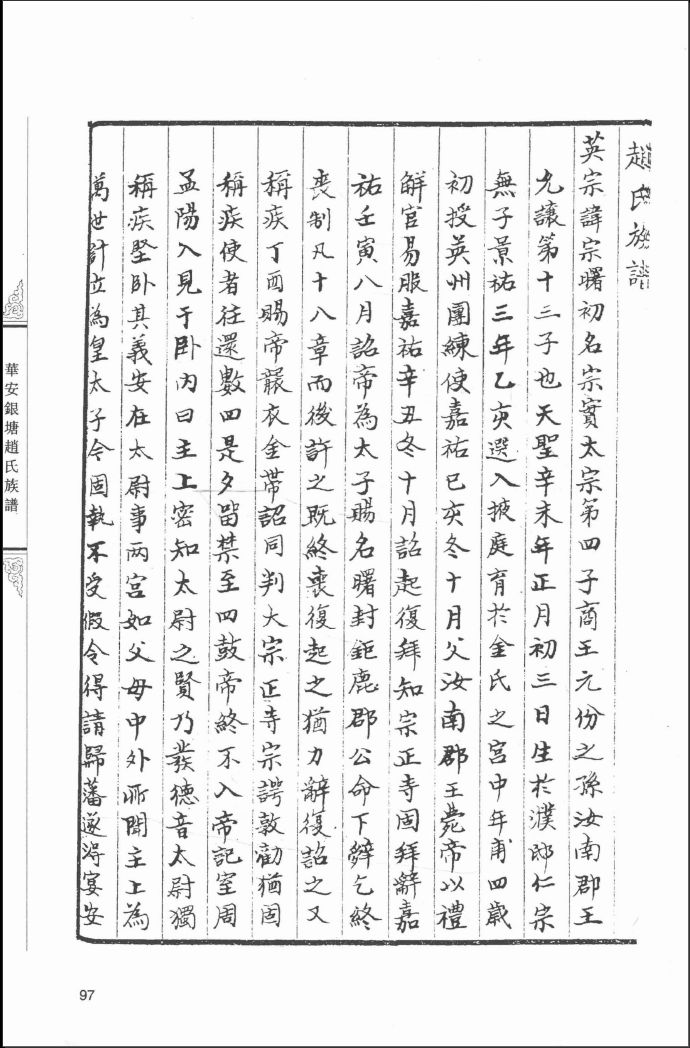 趙氏族譜
英宗諱宗曙初名宗實太宗第四子商王元份之孫汝南郡王
允讓第十三子也天聖辛未年正月初三日生於濮邸仁宗
無子景祐三年乙亥選入掖庭育於金氏之宮中年甫四歲
初授英州團練使嘉祐巳亥冬十月父汝南郡王薨帝以禮
解官易服嘉祐辛丑冬十月詔起復拜知宗正寺固拜辭嘉
祐壬寅八月詔帝為太子賜名曙封鉅鹿郡公命下辭乞終
喪制凡十八章而後許之既終喪復起之猶力辭復詔之又
稱疾丁酉賜帝襲衣金帶詔同判大宗正寺宗諤敦勸猶固
稱疾使者往還數四是夕留禁至四鼓帝終不入帝記室周
孟陽入見于卧内曰主上密知太尉之賢乃發德音太尉獨
稱疾堅卧其義安在太尉事两宫如父母中外所聞主上為
萬世計立為皇太子今固執不受假令得請歸藩遂得宴安
華安銀塘趙氏族譜
97